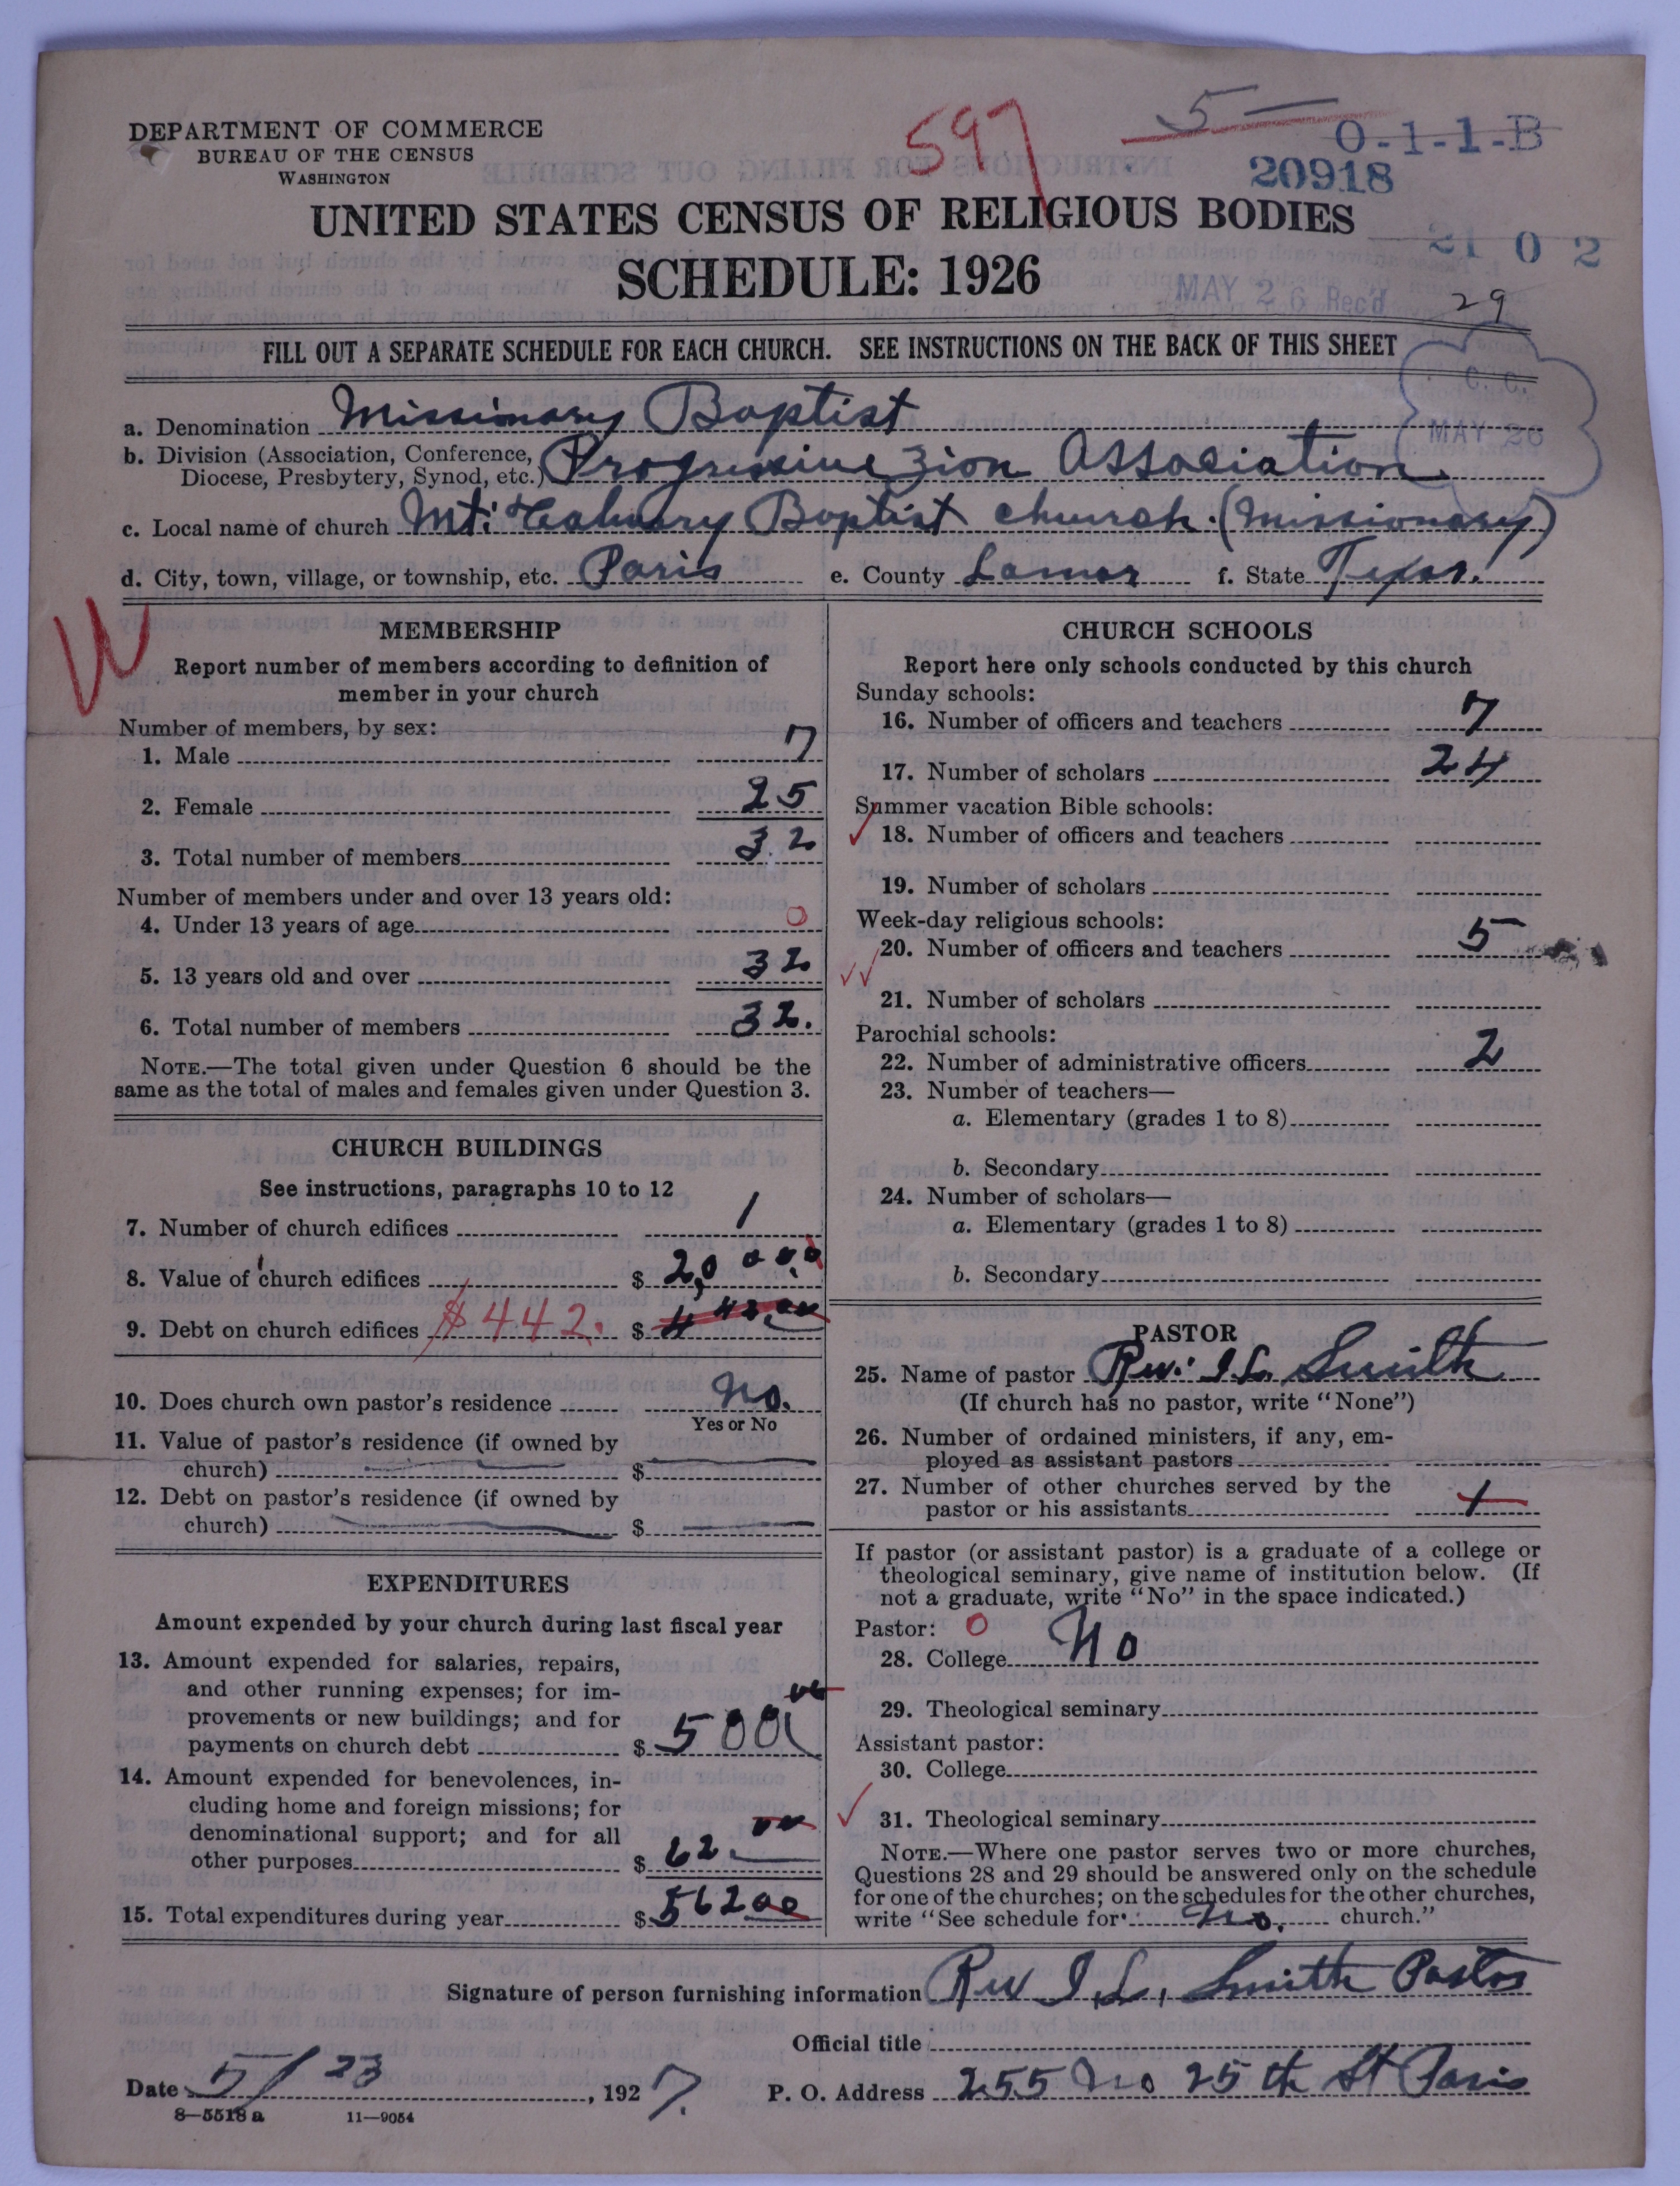 DEPARTMENT OF COMMERCE
BUREAU OF THE CENSUS
WASHINGTON
597
5 —
0-1-1-B
20918
UNITED STATES CENSUS OF RELIGIOUS BODIES
SCHEDULE: 1926
21 0 2
MAY 26 Rec'd
29
FILL OUT A SEPARATE SCHEDULE FOR EACH CHURCH. SEE INSTRUCTIONS ON THE BACK OF THIS SHEET
C. C.
MAY 26
a. Denomination Missionary Baptist
b. Division (Association, Conference, Diocese, Presbytery, Synod, etc.) Progressive Zion Association
c. Local name of church Mt: Calvary Baptist church. (Missionary)
d. City, town, village, or township, etc. Paris e. County Lamar f. State Texas.
W
MEMBERSHIP
Report number of members according to definition of
member in your church
Number of members, by sex:
1. Male 7
2. Female 25
3. Total number of members 32
Number of members under and over 13 years old:
4. Under 13 years of age 0
5. 13 years old and over 32
6. Total number of members 32.
NOTE.—The total given under Question 6 should be the
same as the total of males and females given under Question 3.
CHURCH BUILDINGS
See instructions, paragraphs 10 to 12
7. Number of church edifices 1
8. Value of church edifices $
9. Debt on church edifices $442. $ 442.00
10. Does church own pastor's residence No.
Yes or No
11. Value of pastor's residence (if owned by
church) $
12. Debt on pastor's residence (if owned by
church) $
EXPENDITURES
Amount expended by your church during last fiscal year
13. Amount expended for salaries, repairs,
and other running expenses; for im-
provements or new buildings; and for
payments on church debt $ 500 00
14. Amount expended for benevolences, in-
cluding home and foreign missions; for
denominational support; and for all
other purposes $ 62.00
15. Total expenditures during year $ 562 00
CHURCH SCHOOLS
Report here only schools conducted by this church
Sunday schools:
16. Number of officers and teachers 7
17. Number of scholars 24
Summer vacation Bible schools:
18. Number of officers and teachers
19. Number of scholars
Week-day religious schools:
20. Number of officers and teachers 5
21. Number of scholars
Parochial schools:
22. Number of administrative officers 2
23. Number of teachers—
a. Elementary (grades 1 to 8)
b. Secondary
24. Number of scholars—
a. Elementary (grades 1 to 8)
b. Secondary
PASTOR
25. Name of pastor Rev. I. L. Smith
(If church has no pastor, write "None")
26. Number of ordained ministers, if any, em-
ployed as assistant pastors
27. Number of other churches served by the
pastor or his assistants 1
If pastor (or assistant pastor) is a graduate of a college or
theological seminary, give name of institution below. (If
not a graduate, write "No" in the space indicated.)
Pastor: 0
28. College No
29. Theological seminary
Assistant pastor:
30. College
31. Theological seminary
NOTE.—Where one pastor serves two or more churches,
Questions 28 and 29 should be answered only on the schedule
for one of the churches; on the schedules for the other churches,
write "See schedule for No. church."
Signature of person furnishing information Rev I. L. Smith Pastor
Official title
Date 5/23, 1927. P. O. Address 255 No 25th St Paris
8—5518 a 11—9054